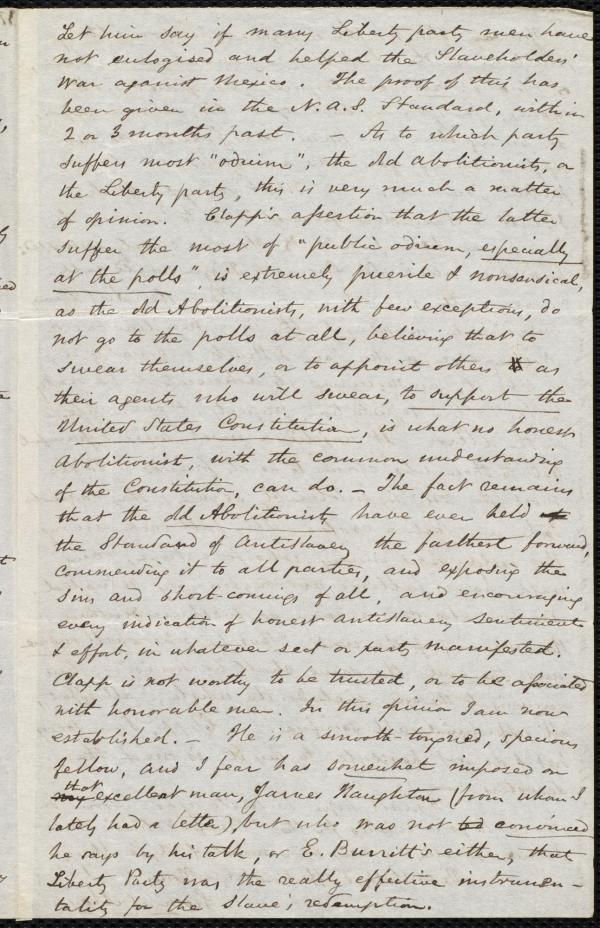 Let him say if many Liberty party men have
not eulogised and helped the Slaveholders'
War against Mexico. The proof of this has
been given in the N. A. S. Standard, within
2 or 3 months past. – As to which party
suffers most "odium", the old abolitionists, or
the Liberty party, this is very much a matter
of opinion. Clapp's assertion that the latter
suffer the most of "public odium, especially
at the polls", is extremely puerile & nonsensical,
as the old Abolitionists, with few exceptions, do
not go to the polls at all, believing that to
swear themselves, or to appoint others as
their agents who will swear, to support the
United States Constitution, is what no honest
Abolitionist, with the common understanding
of the Constitution, can do. – The fact remains
that the old Abolitionists have ever held
the Standard of Antislavery the farthest forward,
commending it to all parties, and exposing the
sins and short-comings of all, and encouraging
every indication of honest antislavery sentiment
& effort, in whatever sect or party manifested.
Clapp is not worthy to be trusted, or to be associated
with honorable men. In this opinion I am now
established. – He is a smooth-tongued, specious
fellow, and I fear has somewhat imposed on
that excellent man, James Haughton (from whom I
lately had a letter), but who was not convinced
he says by his talk, or E. Burritt's either, that
Liberty Party was the really effective instrumen-
tality for the Slave's redemption.